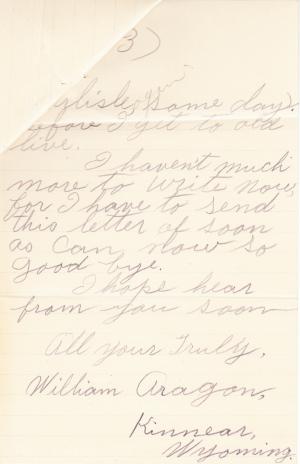 3)
again
some day.
before I get to old
live.
I havent much
more to write now,
for I have to send
this letter of soon
as can, now so
good bye.
I hope hear
from you soon
All your Truly,
William Aragon,
Kinnear,
Wyoming.